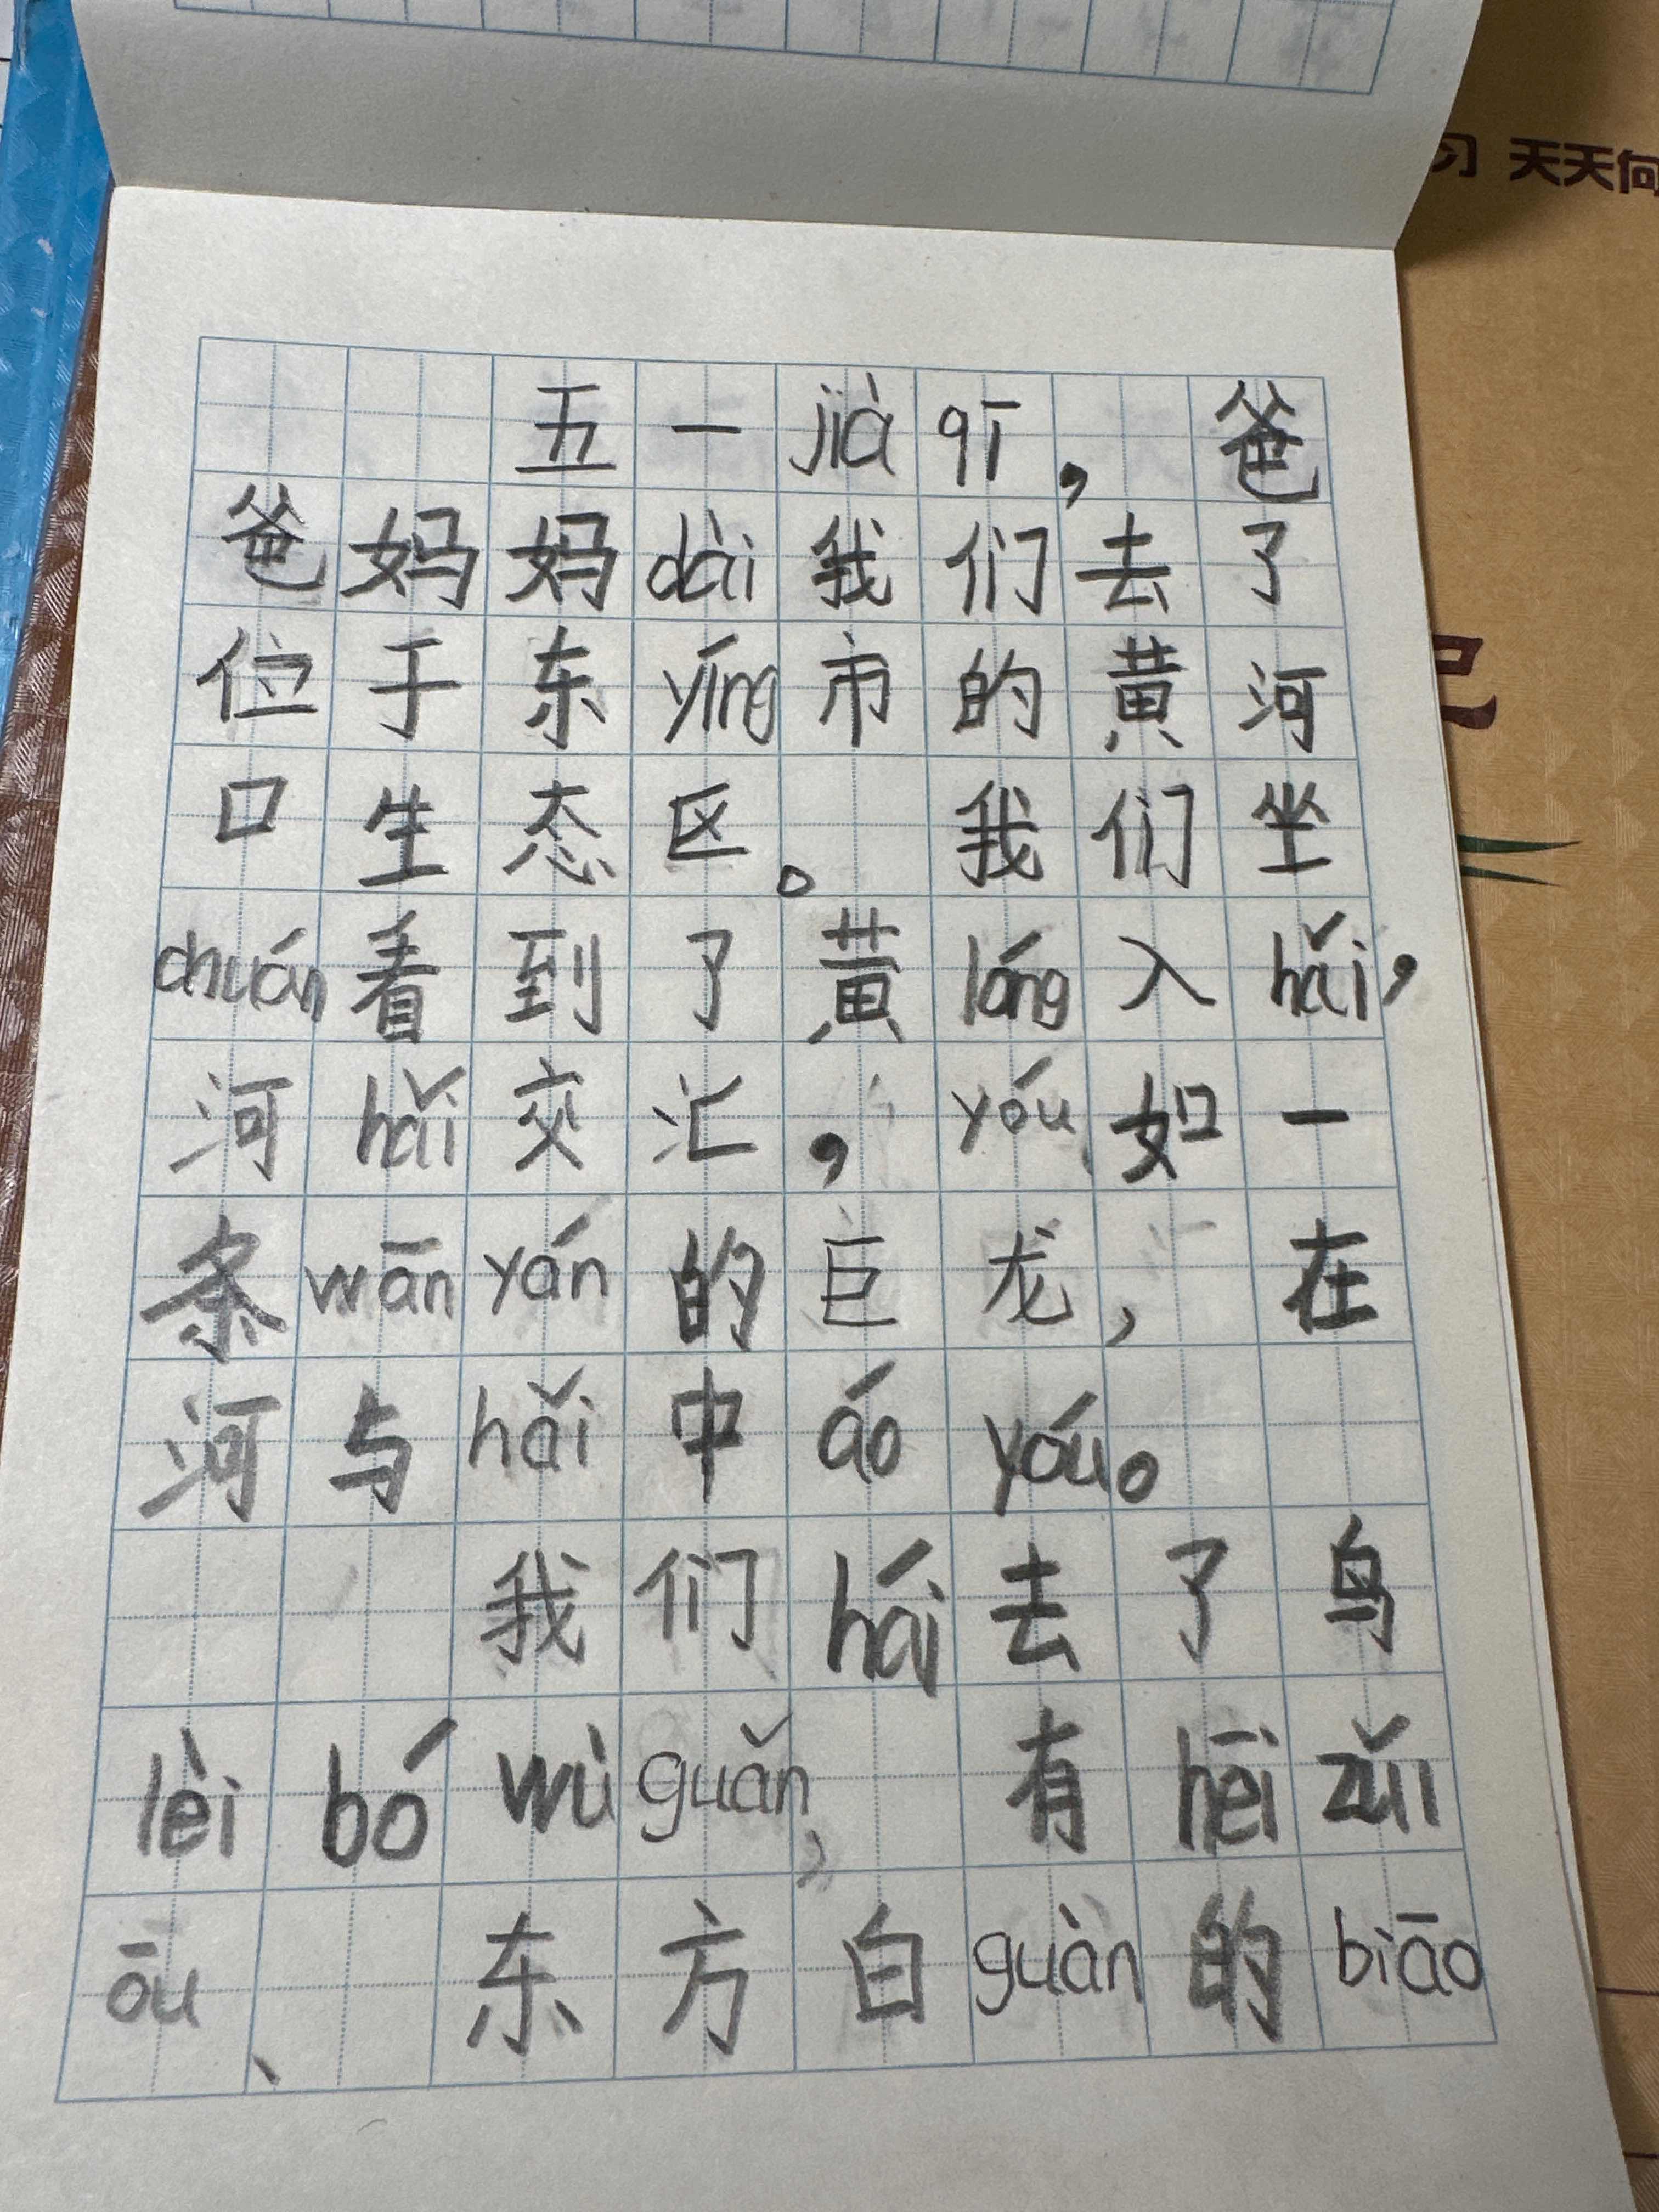 习 天天向
记
五一jià qī，爸
爸妈妈dài我们去了
位于东yíng市的黄河
口生态区。我们坐
chuán看到了黄lóng入hǎi，
河hǎi交汇，yóu如一
条wān yán的巨龙，在
河与hǎi中áo yóu。
我们hái去了鸟
lèi bó wù guǎn，有hēi zuǐ
ōu、东方白guàn的biāo